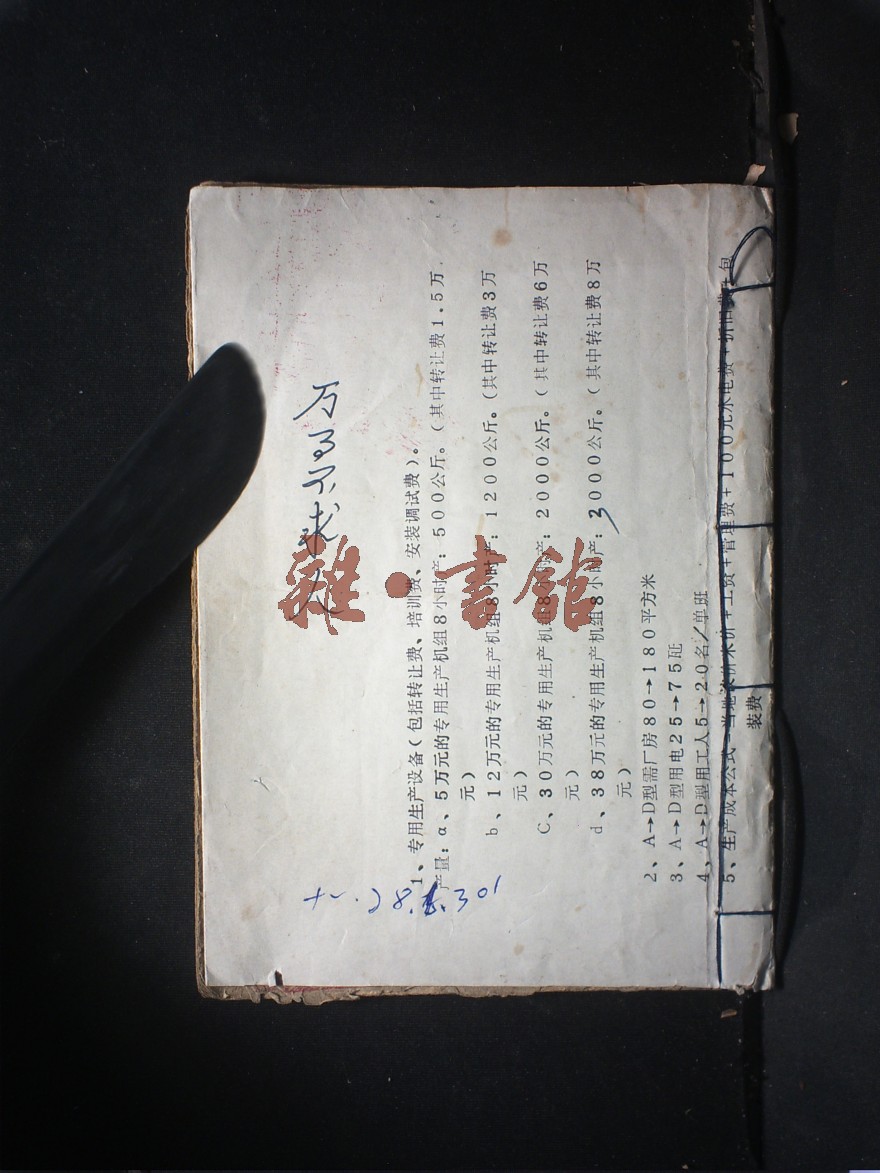 1、专用生产设备(包括转让费、培训费、安装调试费)。
产量:a、5万元的专用生产机组8小时产:500公斤。(其中转让费1.5万
元)
b、12万元的专用生产机组8小时产:1200公斤。(其中转让费3万
元)
C、30万元的专用生产机组8小时产:2000公斤。(其中转让费6万
元)
d、38万元的专用生产机组8小时产:3000公斤。(其中转让费8万
元)
2、A→D型需厂房80→180平方米
3、A→D型用电25→75瓩
4、A→D型用工人5→20名/单班
5、生产成本公式=当地 价米价+工资+管理费+100元水电费+折旧费+包
装费
雜·書館